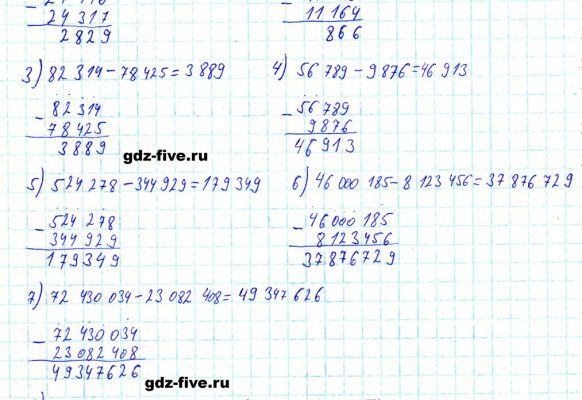 24 317
11 164
2829
866
3) 82 314 - 78 425 = 3 889
4) 56 789 - 9 876 = 46 913
- 82 314
78 425
3889
- 56 789
9876
46 913
gdz-five.ru
5) 524 278 - 344 929 = 179 349
6) 46 000 185 - 8 123 456 = 37 876 729
- 524 278
344 929
179349
- 46000 185
8 123456
37876729
7) 72 430 034 - 23 082 408 = 49 347 626
- 72 430 034
23 082 408
49347626
gdz-five.ru